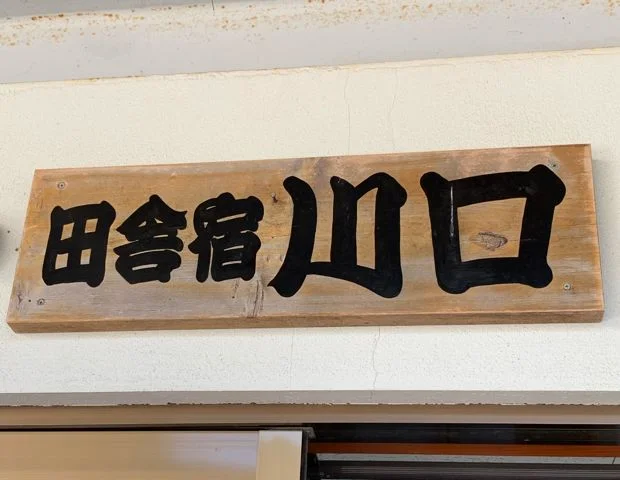 田舎宿川口